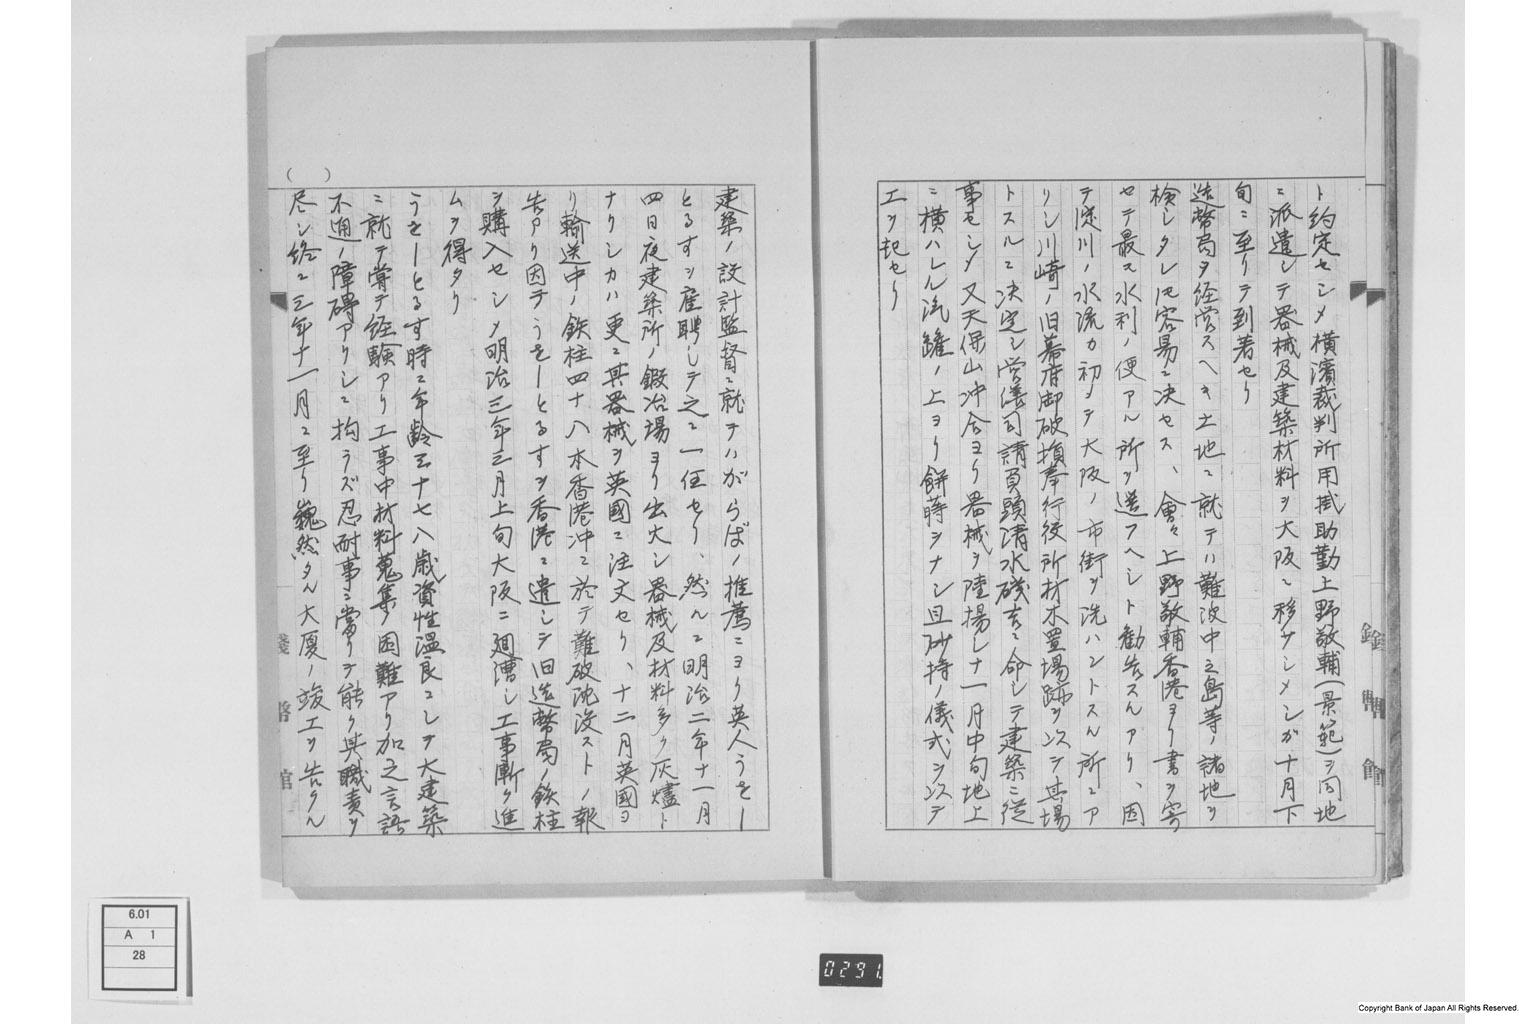 ト約定セシメ横濱裁判所用掛助勤上野敬輔(景範)ヲ同地
ニ派遣シテ器械及建築材料ヲ大阪ニ移サシメシガ十月下
旬ニ至リテ到着セリ
造幣局ヲ経営スヘキ土地ニ就テハ難波中之島等ノ諸地ヲ
検シタレ𪜈容易ニ决セス、會々上野敬輔香港ヨリ書ヲ寄
セテ最モ水利ノ便アル所ヲ選フヘシト勧告スルアリ、因
テ淀川ノ水流カ初メテ大阪ノ市街ヲ洗ハントスル所ニア
リシ川崎ノ旧幕府御破損奉行役所材木置場跡ヲ以テ其場
トスルニ决定シ営繕司請負頭清水磯吉ニ命シテ建築ニ従
事セシメ又天保山冲合ヨリ器械ヲ陸揚シ十一月中旬地上
ニ横ハレル汽鑵ノ上ヨリ餅蒔ヲナシ且砂持ノ儀式ヲ以テ
工ヲ起セリ
建築ノ設計監督ニ就テハがらばノ推薦ニヨリ英人うをー
とるすヲ雇聘シテ之ニ一任セリ、然ルニ明治二年十一月
四日夜建築所ノ鍛冶場ヨリ出火シ器械及材料多ク灰燼ト
ナリシカハ更ニ其器械ヲ英國ニ注文セリ、十二月英國ヨ
リ輸送中ノ鉄柱四十八本香港冲ニ於テ難破沈没ストノ報
告アリ因テうをーとるすヲ香港ニ遣シテ旧造幣局ノ鉄柱
ヲ購入セシメ明治三年三月上旬大阪ニ廻漕シ工事漸ク進
ムヲ得タリ
うをーとるす時ニ年齢三十七八歳資性温良ニシテ大建築
ニ就テ嘗テ経験アリ工事中材料蒐集ノ困難アリ加之言語
不通ノ障碍アリシニ拘ラズ忍耐事ニ當リテ能ク其職責ヲ
尽シ終ニ三年十一月ニ至リ巍然タル大厦ノ竣工ヲ告クル
( )
錢幣館
6.01
A 1
28
0291.
Copyright Bank of Japan All Rights Reserved.